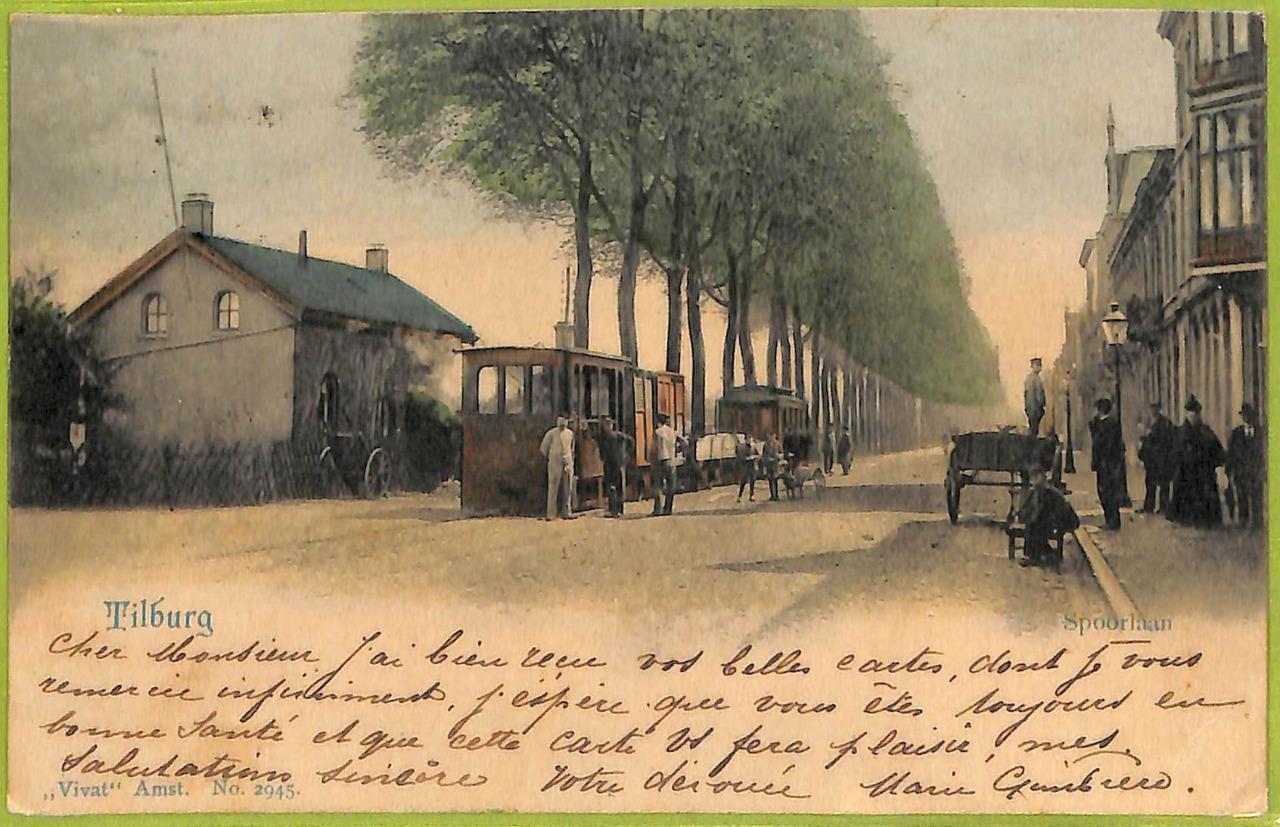 Tilburg
Spoorlaan
Cher Monsieur, J'ai bien reçu vos belles cartes, dont je vous
remercie infiniment, j'éspère que vous êtes toujours en
bonne Santé et que cette carte Vs fera plaisir, mes
Salutations sincère Votre dévouée Marie
„Vivat" Amst. No. 2945.